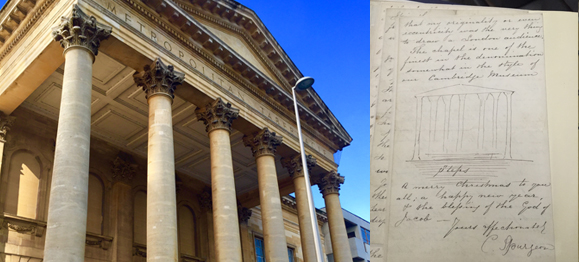 METROPOLITAN TABERNACLE
that my originality or even
eccentricity was the very thing
to draw a London audience.
The chapel is one of the
finest in the denomination
somewhat in the style of
our Cambridge Museum
Steps
A merry Christmas to you
all, a happy new year,
& the blessing of the God of
Jacob —
Yours affectionately
C Spurgeon